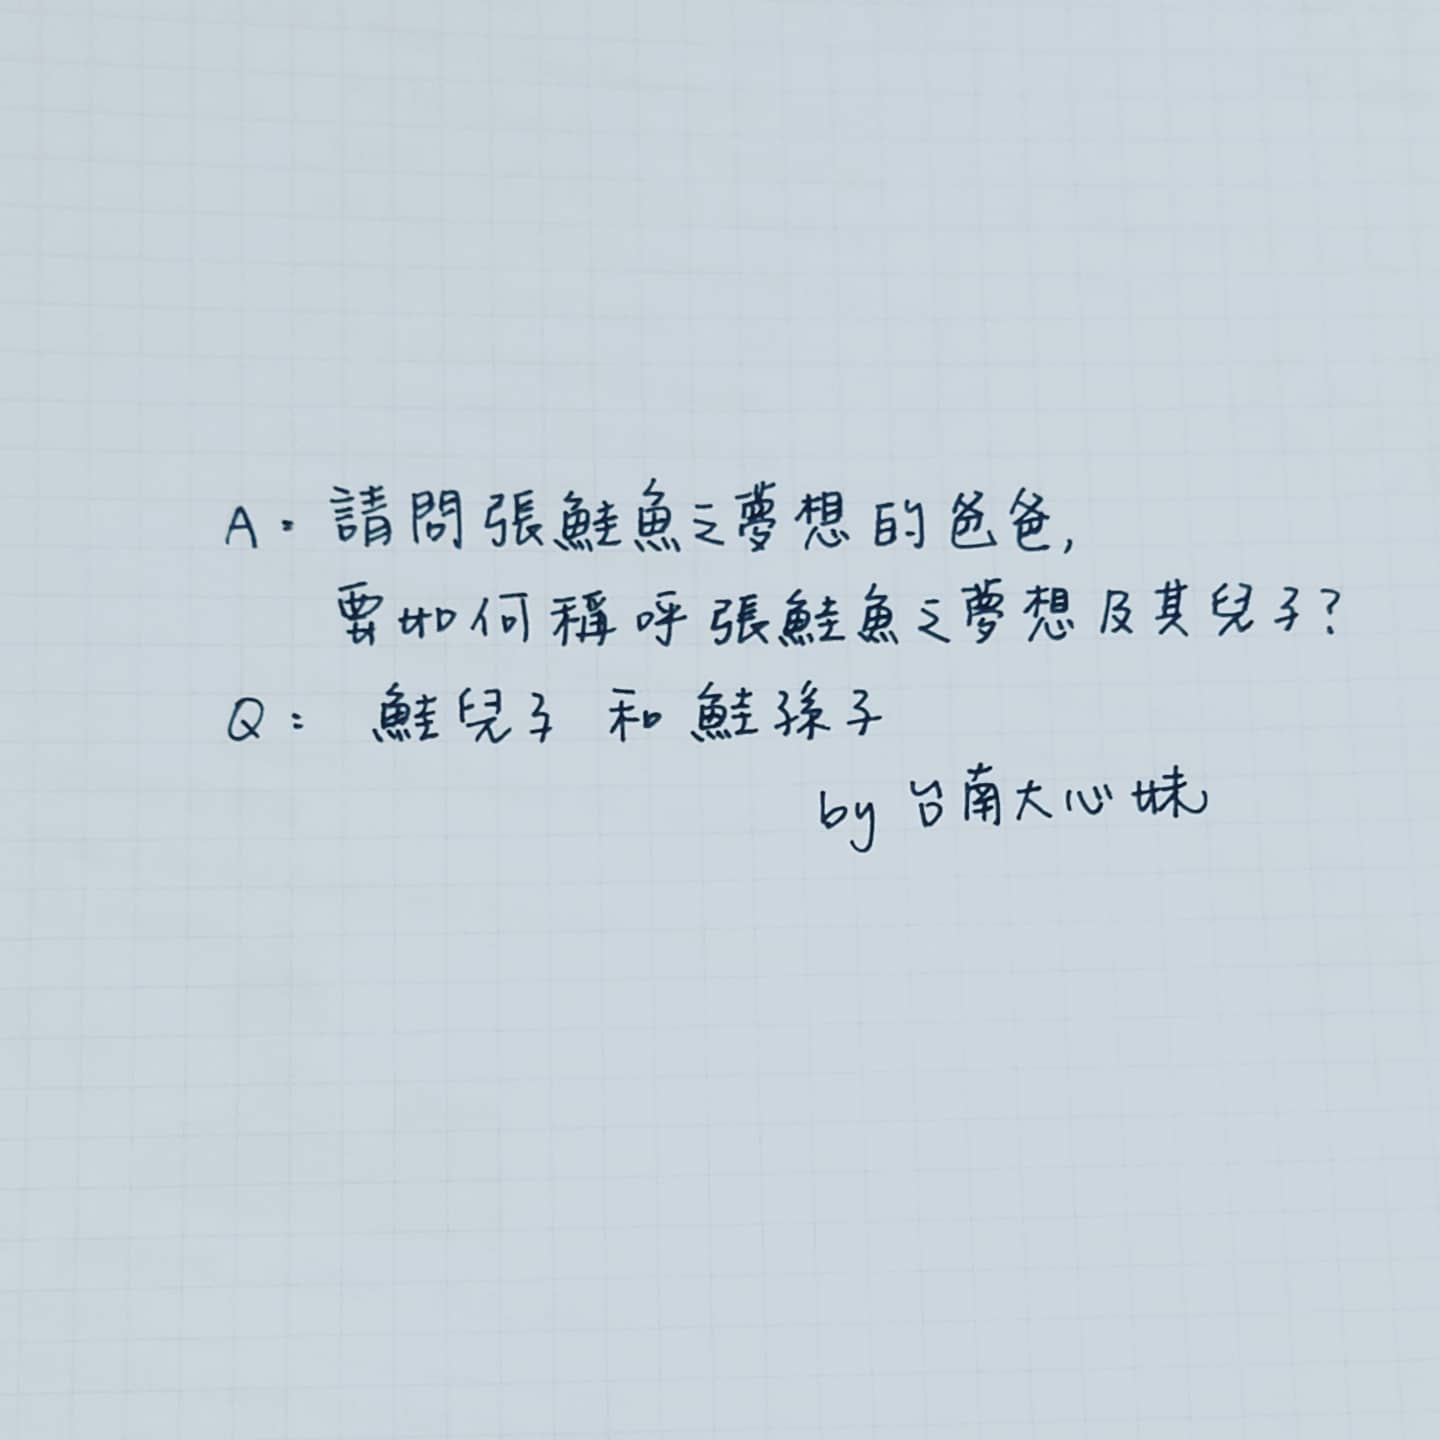 A: 請問張鮭魚之夢想的爸爸,
要如何稱呼張鮭魚之夢想及其兒子?
Q: 鮭兒子 和 鮭孫子
by 台南大心妹